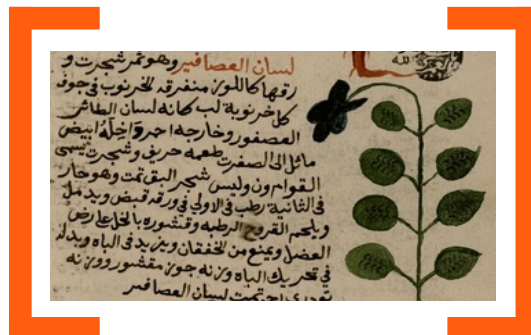 لسان العصافير وهو ثمر شجرت و
رقها كاللوز متفرقه الخرنوب في جوف
كل خرنوبة لب كانه لسان الطائر
العصفور وخارجه احمر واخله ابيض
مائل الى الصفرت طعمه حريف وشجرت تسمى
القوام ون وليس شجر البق تمت وهو حار
في الثانية رطب في الاولى في ورقه قبض ويدمل
ويلحم القروح الرطبه وقشوره بالخل على رض
العضل ويمنع من الخفقان ويزيد في الباه وبدله
في تحريك الباه وزنه جوز مقشور ووزنه
تودرى احمر تمت لسان العصافير